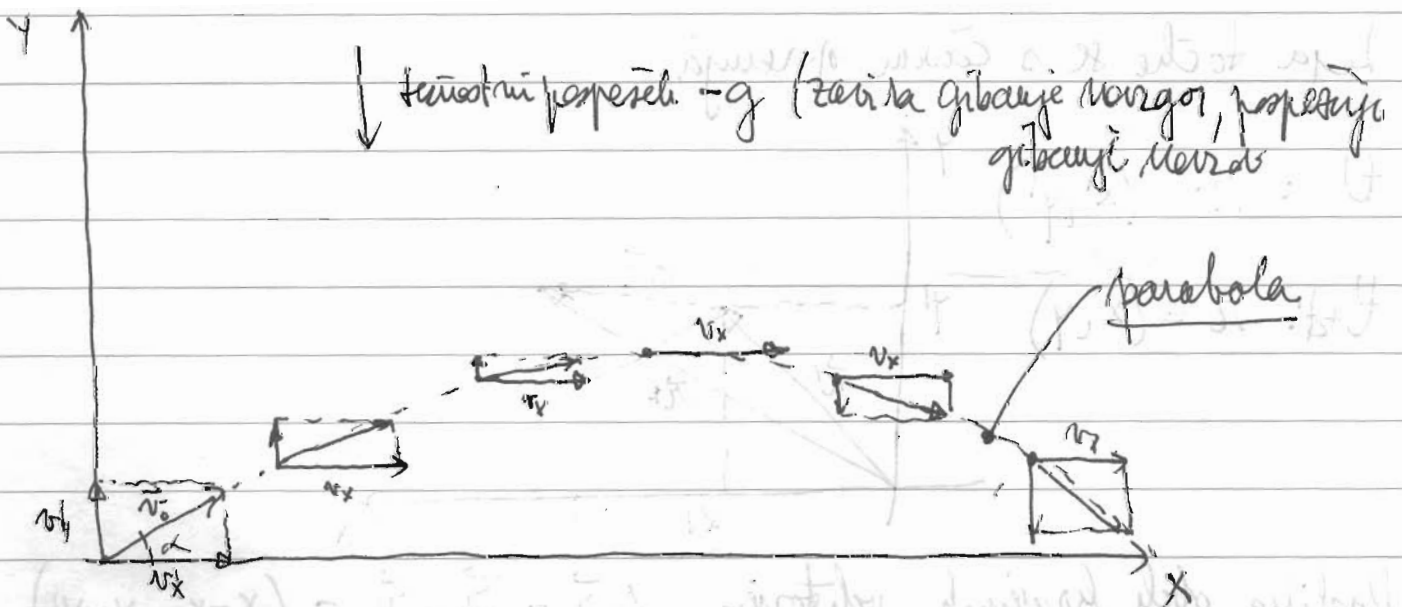 Y
težnostni pospešek -g (zavira gibanje navzgor, pospešuje
gibanje navzdol
parabola
vx
vx
vx
vx
vx
vy
v0
α
vx
X